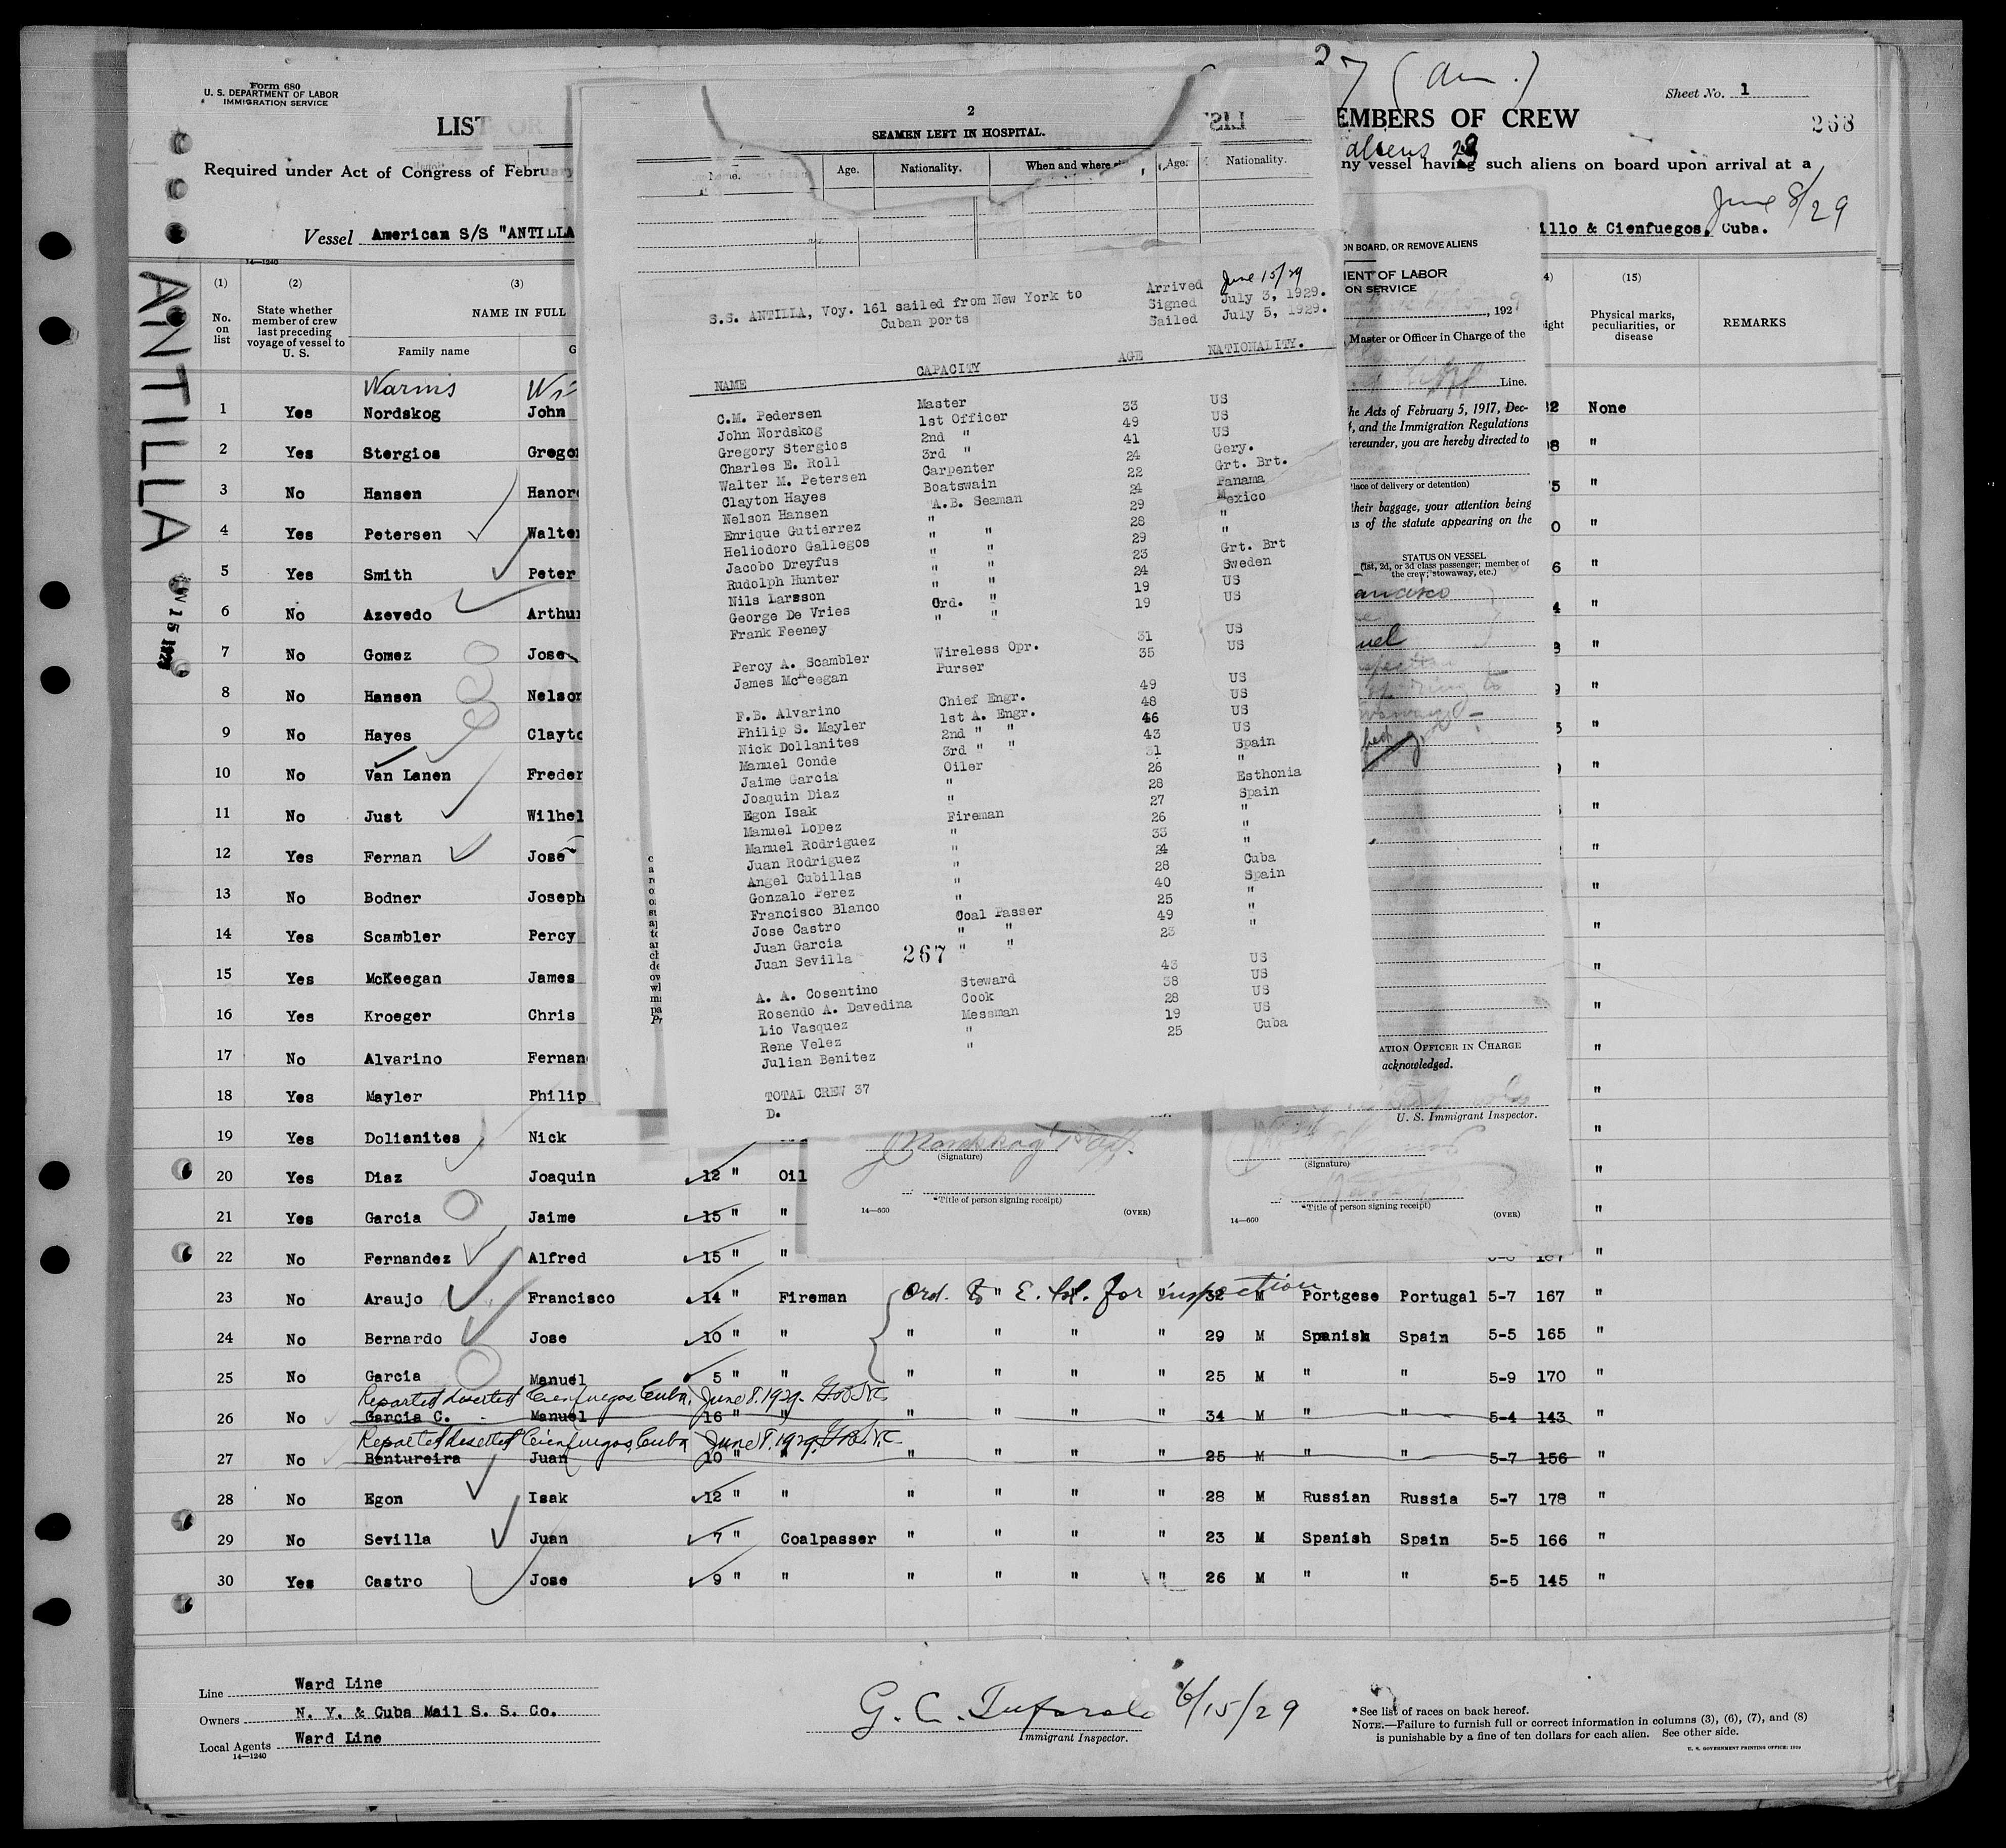 Form 680
U. S. DEPARTMENT OF LABOR
IMMIGRATION SERVICE
LIST OR
EMBERS OF CREW
Sheet No. 1
268
Required under Act of Congress of February
aliens
ny vessel having such aliens on board upon arrival at a
June 8/29
Vessel American S/S "ANTILLA
illo & Cienfuegos, Cuba.
ANTILLA
14—1240
(1) No. on list
(2) State whether member of crew last preceding voyage of vessel to U. S.
(3) NAME IN FULL
Family name
(15) Physical marks, peculiarities, or disease
REMARKS
Warms
1 Yes Nordskog John None
2 Yes Stergios Grego "
3 No Hansen Hanor "
4 Yes Petersen Walte "
5 Yes Smith Peter "
6 No Azevedo Arthu "
7 No Gomez Jose "
8 No Hansen Nelson "
9 No Hayes Clayto "
10 No Van Lanen Freder "
11 No Just Wilhel "
12 Yes Fernan Jose "
13 No Bodner Joseph "
14 Yes Scambler Percy "
15 Yes McKeegan James "
16 Yes Kroeger Chris "
17 No Alvarino Fernan "
18 Yes Mayler Philip "
19 Yes Dolianites Nick "
20 Yes Diaz Joaquin 12 " Oil "
21 Yes Garcia Jaime 15 " " "
22 No Fernandez Alfred 15 " " "
Ord. to E. Isl. for inspection
23 No Araujo Francisco 14 " Fireman " " 32 M Portgese Portugal 5-7 167 "
24 No Bernardo Jose 10 " " " " " " 29 M Spanish Spain 5-5 165 "
25 No Garcia Manuel 5 " " " " " " 25 M " " 5-9 170 "
Reported deserted Cienfuegos Cuba, June 8, 1929.
26 No Garcia C. Manuel 16 " " " " " " 34 M " " 5-4 143 "
Reported deserted Cienfuegos Cuba June 8, 1929.
27 No Bentureira Juan 10 " " " " " " 25 M " " 5-7 156 "
28 No Egon Isak 12 " " " " " " 28 M Russian Russia 5-7 178 "
29 No Sevilla Juan 7 " Coalpasser " " " " 23 M Spanish Spain 5-5 166 "
30 Yes Castro Jose 9 " " " " " " 26 M " " 5-5 145 "
Line Ward Line
Owners N. Y. & Cuba Mail S. S. Co.
Local Agents Ward Line
14—1240
6/15/29
Immigrant Inspector.
*See list of races on back hereof.
NOTE.—Failure to furnish full or correct information in columns (3), (6), (7), and (8)
is punishable by a fine of ten dollars for each alien. See other side.
U. S. GOVERNMENT PRINTING OFFICE: 1929
2
SEAMEN LEFT IN HOSPITAL.
Name. Age. Nationality. When and where Age. Nationality.
S.S. ANTILLA, Voy. 161 sailed from New York to
Cuban ports
Arrived June 15/29
Signed July 3, 1929.
Sailed July 5, 1929.
NAME CAPACITY AGE NATIONALITY.
C.M. Pedersen Master 33 US
John Nordskog 1st Officer 49 US
Gregory Stergios 2nd " 41 US
Charles E. Roll 3rd " 24 Gery.
Walter M. Petersen Carpenter 22 Grt. Brt.
Clayton Hayes Boatswain 24 Panama
Nelson Hansen A.B. Seaman 29 Mexico
Enrique Gutierrez " " 28 "
Heliodoro Gallegos " " 29 "
Jacobo Dreyfus " " 23 Grt. Brt
Rudolph Hunter " " 24 Sweden
Nils Larsson Ord. " 19 US
George De Vries " " 19 US
Frank Feeney
Percy A. Scambler Wireless Opr. 31 US
James McKeegan Purser 35 US
F.B. Alvarino Chief Engr. 49 US
Philip S. Mayler 1st A. Engr. 48 US
Nick Dollanites 2nd " " 46 US
Manuel Conde 3rd " " 43 US
Jaime Garcia Oiler 31 Spain
Joaquin Diaz " 26 "
Egon Isak " 28 Esthonia
Manuel Lopez Fireman 27 Spain
Manuel Rodriguez " 26 "
Juan Rodriguez " 33 "
Angel Cubillas " 24 "
Gonzalo Perez " 28 Cuba
Francisco Blanco " 40 Spain
Jose Castro Coal Passer 25 "
Juan Garcia " " 49 "
Juan Sevilla " " 23 "
267
A. A. Cosentino Steward 43 US
Rosendo A. Davedina Cook 38 US
Lio Vasquez Messman 28 US
Rene Velez " 19 US
Julian Benitez " 25 Cuba
TOTAL CREW 37
D.
ON BOARD, OR REMOVE ALIENS
MENT OF LABOR
ON SERVICE
, 192
Master or Officer in Charge of the
Line.
he Acts of February 5, 1917, Dec-
, and the Immigration Regulations
hereunder, you are hereby directed to
lace of delivery or detention)
their baggage, your attention being
s of the statute appearing on the
STATUS ON VESSEL
(1st, 2d, or 3d class passenger; member of
the crew; stowaway, etc.)
ATION OFFICER IN CHARGE
acknowledged.
U. S. Immigrant Inspector.
(Signature)
*Title of person signing receipt)
14—660
(OVER)
(Signature)
*Title of person signing receipt)
14—660
(OVER)